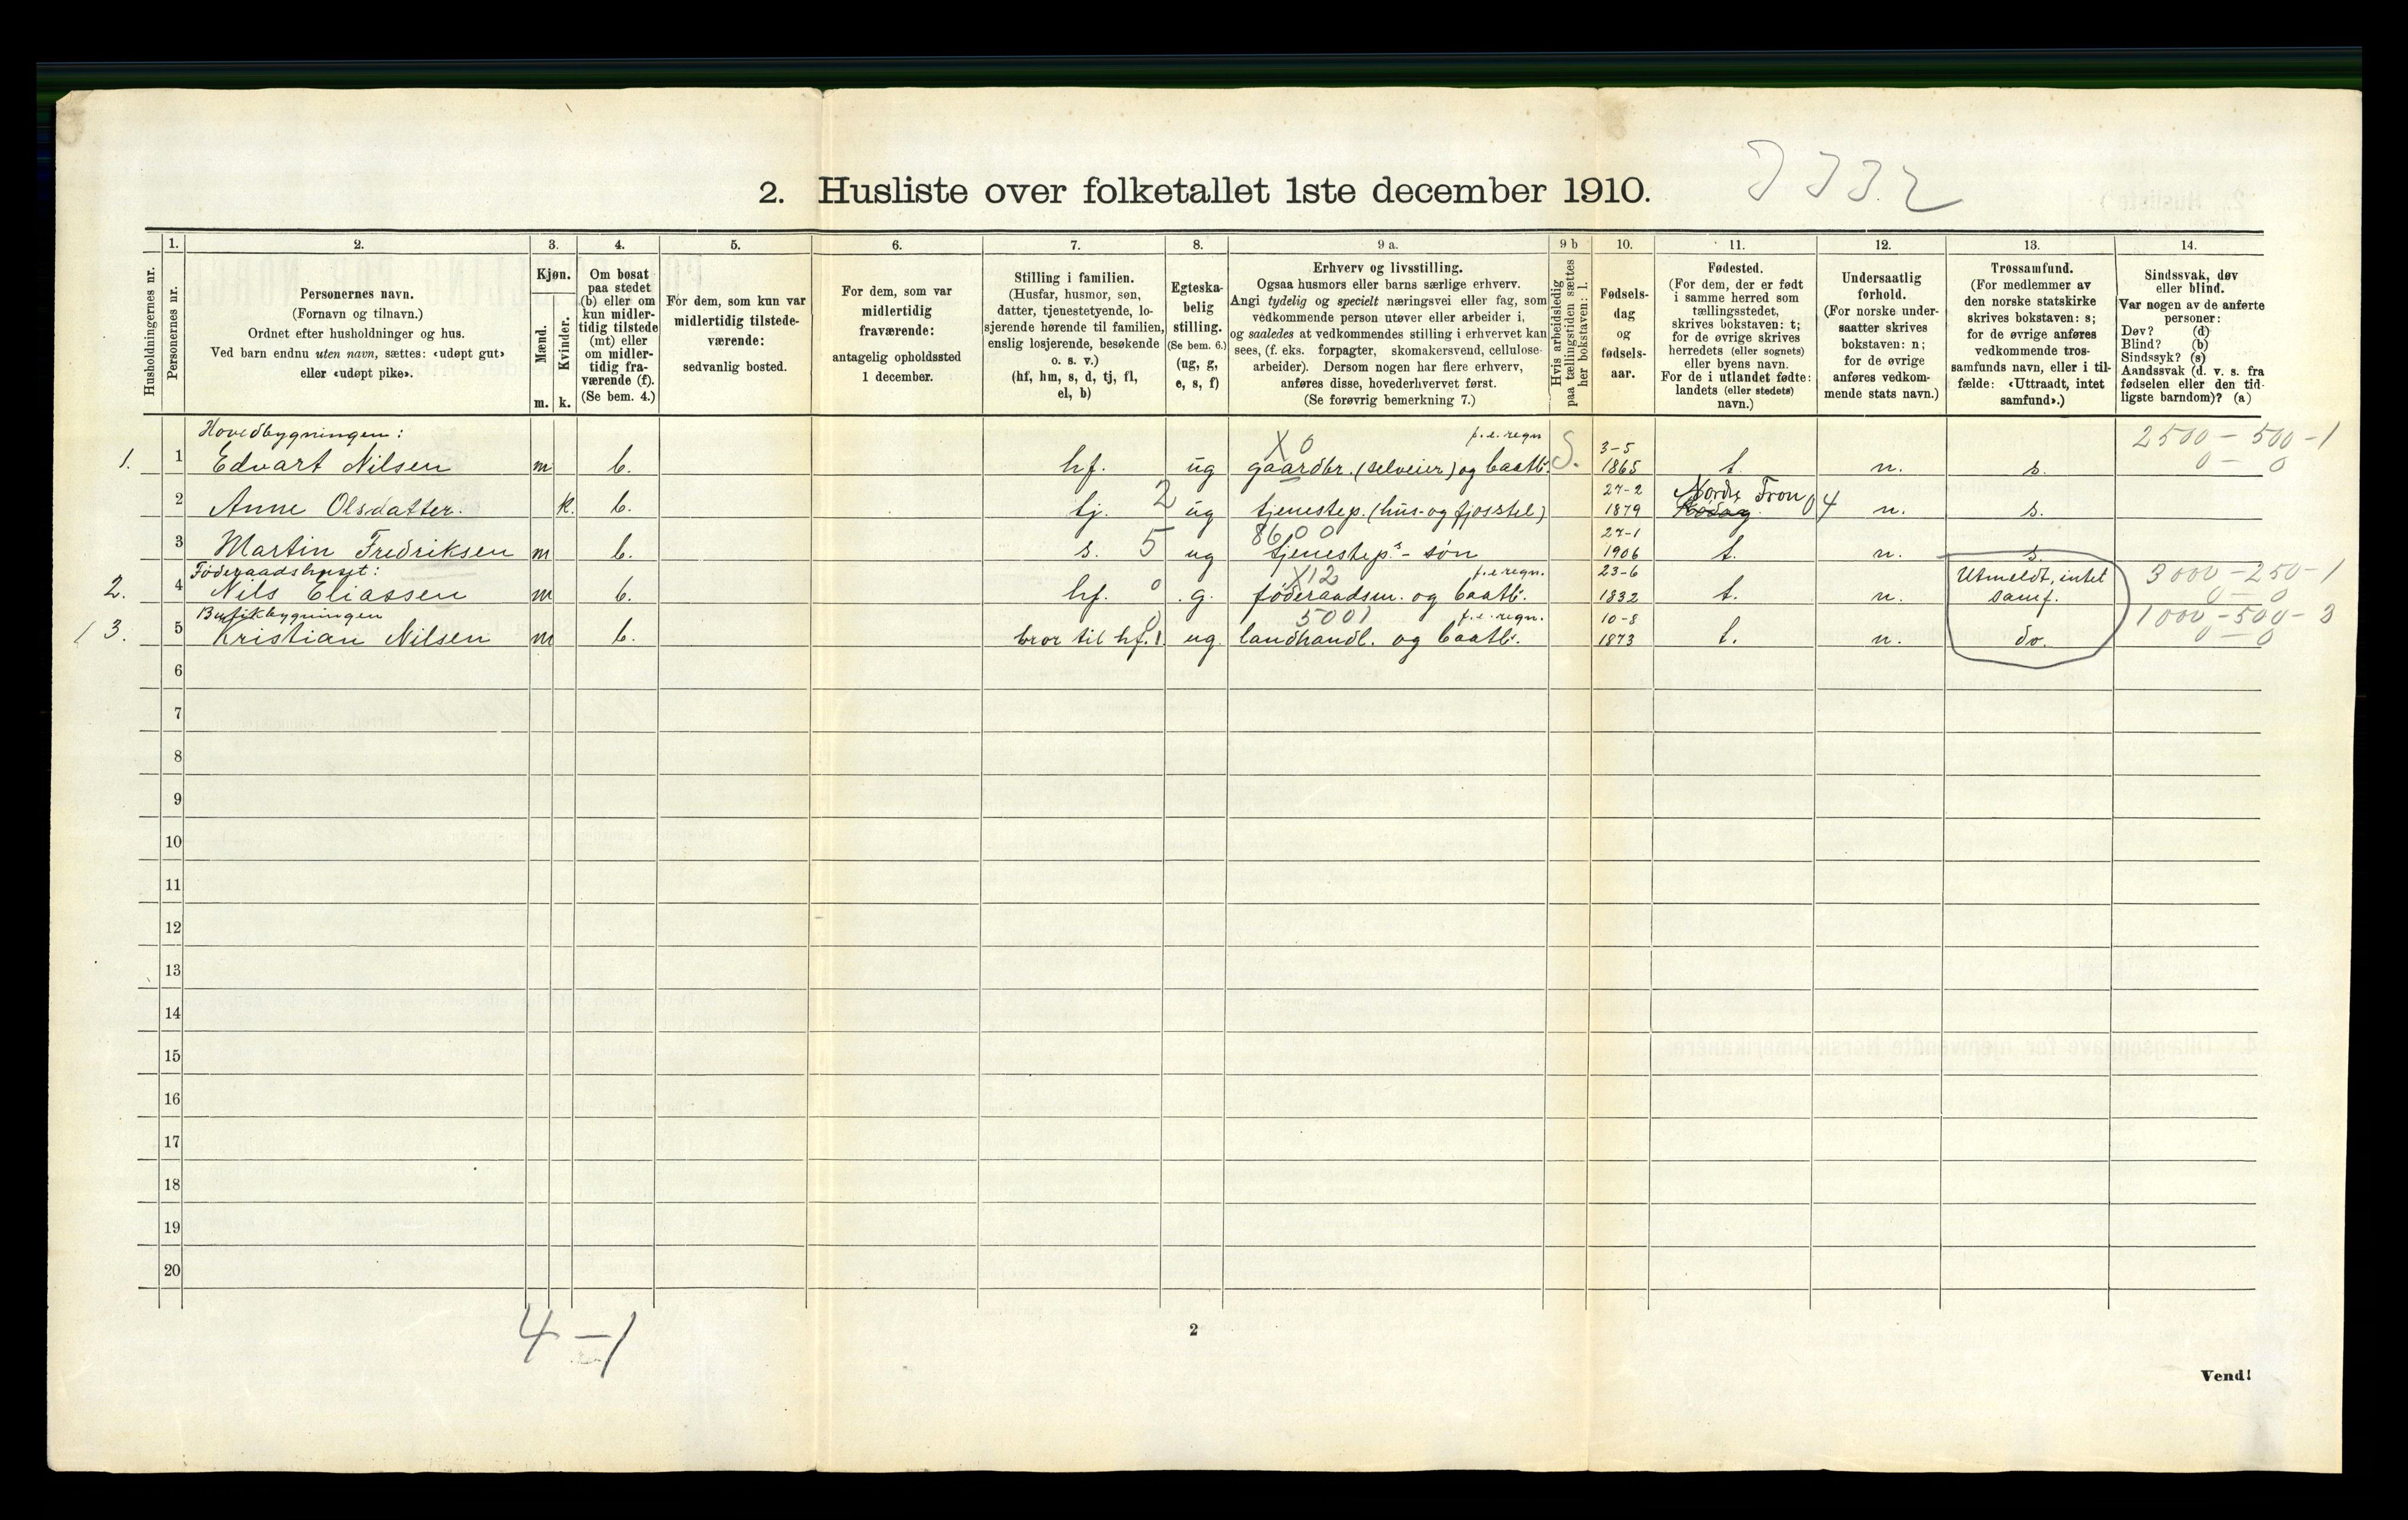 2. Husliste over folketallet 1ste december 1910.
1. 2. 3. 4. 5. 6. 7. 8. 9 a. 9 b 10. 11. 12. 13. 14.
Husholdningernes nr.
Personernes nr.
Personernes navn.
(Fornavn og tilnavn.)
Ordnet efter husholdninger og hus.
Ved barn endnu uten navn, sættes: «udøpt gut»
eller «udøpt pike».
Kjøn.
Mænd.
Kvinder.
m. k.
Om bosat
paa stedet
(b) eller om
kun midler-
tidig tilstede
(mt) eller
om midler-
tidig fra-
værende (f).
(Se bem. 4.)
For dem, som kun var
midlertidig tilstede-
værende:
sedvanlig bosted.
For dem, som var
midlertidig
fraværende:
antagelig opholdssted
1 december.
Stilling i familien.
(Husfar, husmor, søn,
datter, tjenestetyende, lo-
sjerende hørende til familien,
enslig losjerende, besøkende
o. s. v.)
(hf, hm, s, d, tj, fl,
el, b)
Egteska-
belig
stilling.
(Se bem. 6.)
(ug, g,
e, s, f)
Erhverv og livsstilling.
Ogsaa husmors eller barns særlige erhverv.
Angi tydelig og specielt næringsvei eller fag, som
vedkommende person utøver eller arbeider i,
og saaledes at vedkommendes stilling i erhvervet kan
sees, (f. eks. forpagter, skomakersvend, cellulose-
arbeider). Dersom nogen har flere erhverv,
anføres disse, hovederhvervet først.
(Se forøvrig bemerkning 7.)
Hvis arbeidsledig
paa tællingstiden sættes
her bokstaven: l.
Fødsels-
dag
og
fødsels-
aar.
Fødested.
(For dem, der er født
i samme herred som
tællingsstedet,
skrives bokstaven: t;
for de øvrige skrives
herredets (eller sognets)
eller byens navn.
For de i utlandet fødte:
landets (eller stedets)
navn.)
Undersaatlig
forhold.
(For norske under-
saatter skrives
bokstaven: n;
for de øvrige
anføres vedkom-
mende stats navn.)
Trossamfund.
(For medlemmer av
den norske statskirke
skrives bokstaven: s;
for de øvrige anføres
vedkommende tros-
samfunds navn, eller i til-
fælde: «Uttraadt, intet
samfund».)
Sindssvak, døv
eller blind.
Var nogen av de anførte
personer:
Døv? (d)
Blind? (b)
Sindssyk? (s)
Aandssvak (d. v. s. fra
fødselen eller den tid-
ligste barndom)? (a)
Hovedbygningen: X 0 f.e. regn 2500 - 500 - 1
1. 1 Edvart Nilsen m b. hf. ug gaardbr. (selveier) og baatb. S. 3-5 1865 t. n. s. 0 - 0
2 Anne Olsdatter. k. b. tj. 2 ug tjenestep. (hus- og fjosstel) 27-2 1879 Nordre Fron 04 n. s.
3 Martin Fredriksen m b. s. 5 ug 8600 tjenestep.s - søn 27-1 1906 t. n. s.
Føderaadshuset: X12 f.e regn. 3000 - 250 - 1
2. 4 Nils Eliassen m b. hf. 0 g. føderaadsm. og baatb. 23-6 1832 t. n. Utmeldt, intet samf. 0 - 0
Butikbygningen 5001 f.e. regn. 1000 - 500 - 3
3. 5 Kristian Nilsen m b. bror til hf. 1. ug. landhandl. og baatb. 10-8 1873 t. n. do. 0 - 0
6
7
8
9
10
11
12
13
14
15
16
17
18
19
20
4 - 1
2
Vend!